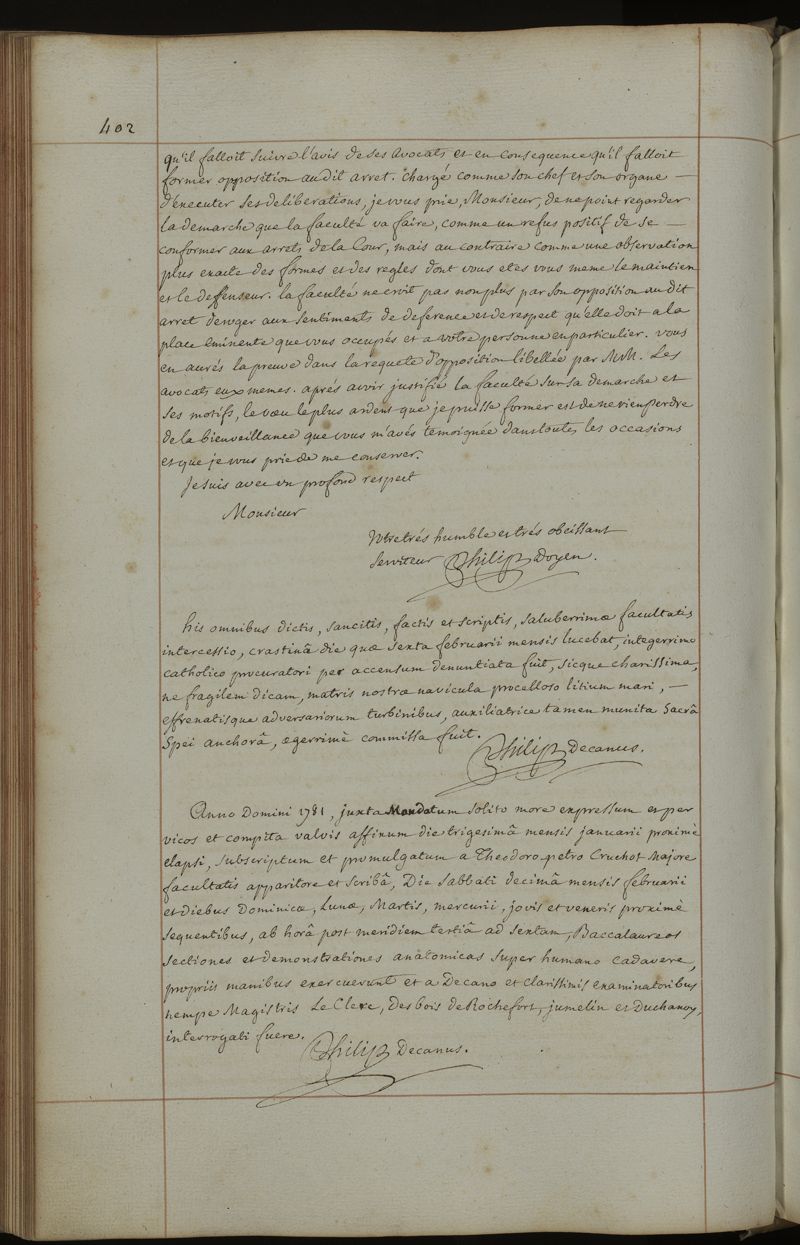 402
qu'il falloit suivre l'avis de ses avocats et en consequence qu'il falloit
former opposition au dit arret. chargé comme son chef et son organe —
d'executer ses deliberations, je vous prie, Monsieur, de ne point regarder
la demarche que la faculté va faire, comme un refus positif de se —
conformer aux arrets de la Cour, mais au contraire comme une observation
plus exacte des formes et des regles dont vous etes vous meme le maintien
et le deffenseur. la faculté ne croit pas non plus par son opposition au dit
arret deroger aux sentiments de deference et de respect qu'elle doit a la
place eminente que vous occupés et a votre personne en particulier. vous
en aurés la preuve dans la requete d'opposition libellée par MM. Les
avocats eux memes. aprés avoir justifié la faculté sur sa demarche et
ses motifs, le vœu le plus ardent que je puisse former est de ne rien perdre
de la bienveillance que vous m'avés temoignée dans toutes les occasions
et que je vous prie de me conserver.
Je suis avec un profond respect
Monsieur
Votre trés humble et trés obeissant
serviteur Philip Doyen.
his omnibus dictis, sancitis, factis et scriptis, saluberrimæ facultatis
intercessio, crastinâ die quæ sexta februarii mensis lucebat, integerrimo
catholico procuratori per accensum denuntiata fuit, sicque charissima,
ne fragilem dicam, matris nostræ navicula procelloso litium mari, —
effrenatisque adversariorum turbinibus, auxiliatrice tamen munita sacrâ
spei anchorâ, ægerrimè commissa fuit.
Philip Decanus.
Anno Domini 1781, juxta Mandatum solito more expressum et per
vicos et compita valvis affixum die trigesimâ mensis januarii proximè
elapsi, subscriptum et promulgatum a Theodoro petro Cruchot Majore
facultatis apparitore et scribâ, Die sabbati decimâ mensis februarii
et diebus Dominicæ, Lunæ, Martis, mercurii, jovis et veneris proximè
sequentibus, ab horâ post meridiem tertiâ ad sextam, Baccalaureos
sectiones et demonstrationes anatomicas super humano cadavere,
propriis manibus exercuerunt et a Decano et clarissimis examinatoribus
nempe Magistris Le Clerc, Des bois de Rochefort, jumelin et Duchanoy,
interrogati fuere.
Philip Decanus.